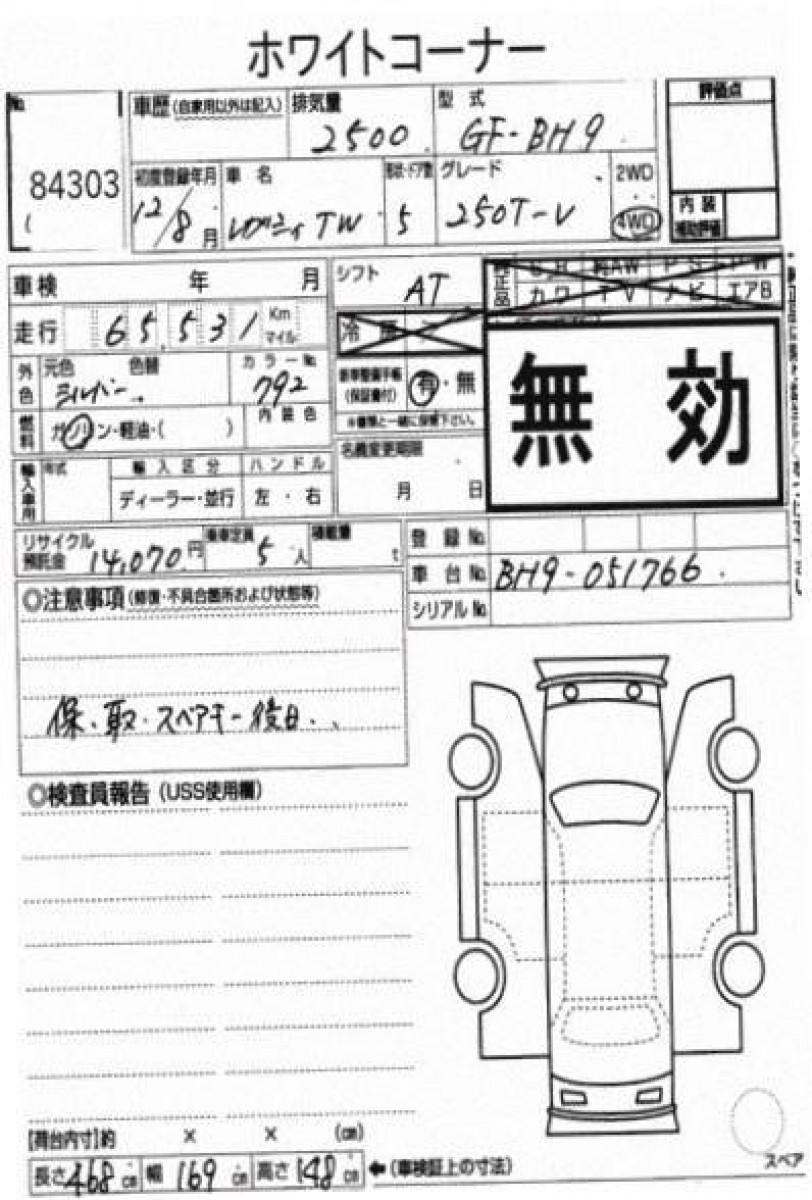 ホワイトコーナー
No.
84303
車歴(自家用以外は記入)
排気量
2500
型式
GF-BH9
評価点
初度登録年月
12/8月
車名
レガシィTW
形状・ドア数
5
グレード
250T-V
2WD
4WD
内装
補助評価
車検 年 月
シフト
AT
純正品
純AW PS PW
カワ TV ナビ エアB
走行 65,531 Km マイル
外色
元色
シルバー
色替
カラーNo.
792
新車整備手帳
(保証書付)
有・無
※書類と一緒に保管下さい。
無効
燃料
ガソリン・軽油・( )
内装色
名義変更期限
月 日
輸入車用
年式
輸入区分
ディーラー・並行
ハンドル
左・右
リサイクル
預託金
14,070円
乗車定員
5人
積載量
t
登録No.
車台No.
BH9-051766
シリアルNo.
◎注意事項(修復・不具合箇所および状態等)
保・取・スペアキー後日.
◎検査員報告(USS使用欄)
[荷台内寸]約 × × (cm)
長さ468cm 幅169cm 高さ148cm
←(車検証上の寸法)
スペア